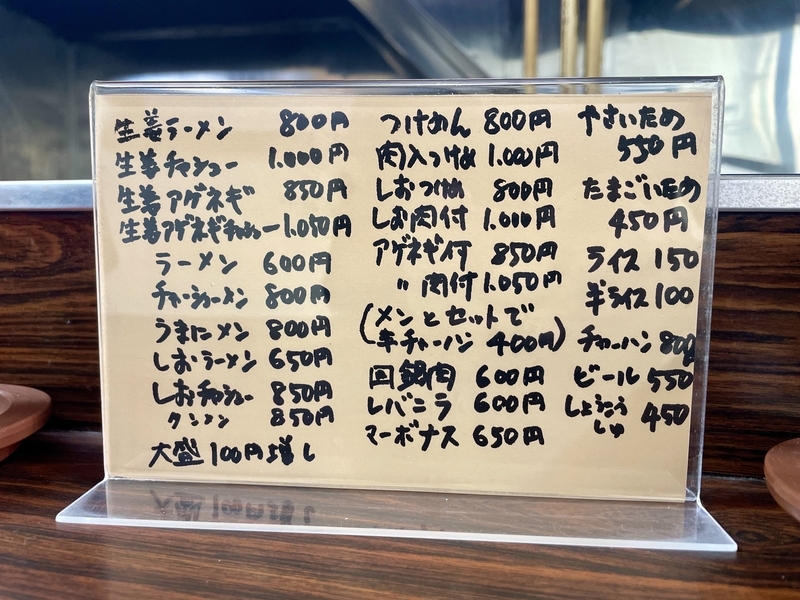 生姜ラーメン 800円
生姜チャシュー 1.000円
生姜アゲネギ 850円
生姜アゲネギチャシュー 1.050円
ラーメン 600円
チャーシューメン 800円
うまにメン 800円
しおラーメン 650円
しおチャシュー 850円
タンメン 850円
大盛 100円増し
つけめん 800円
肉入つけめ 1.000円
しおつけめ 800円
しお肉付 1.000円
アゲネギ付 850円
〃 肉付 1.050円
(メンとセットで
半チャーハン 400円)
回鍋肉 600円
レバニラ 600円
マーボナス 650円
やさいため
550円
たまごいため
450円
ライス 150
半ライス 100
チャーハン 800
ビール 550
しょうこう
しゅ 450